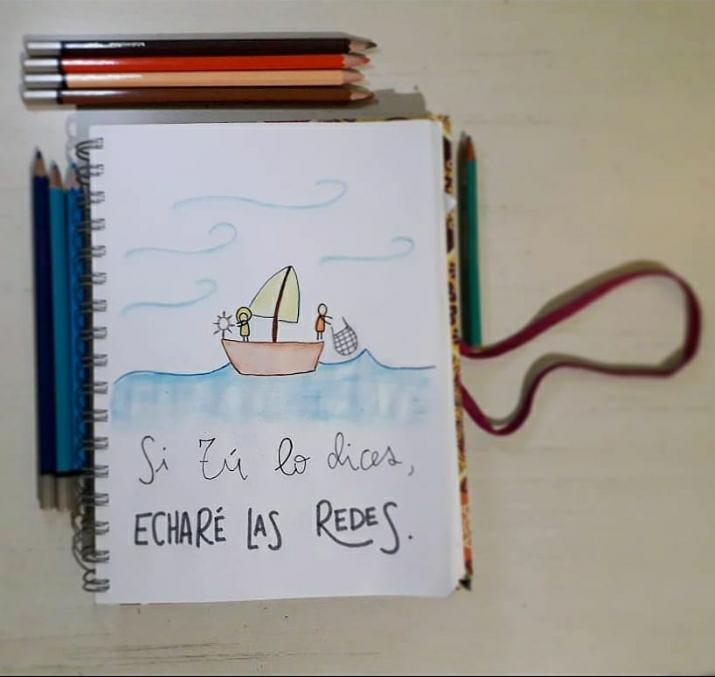 Si Tú lo dices,
ECHARÉ LAS REDES.